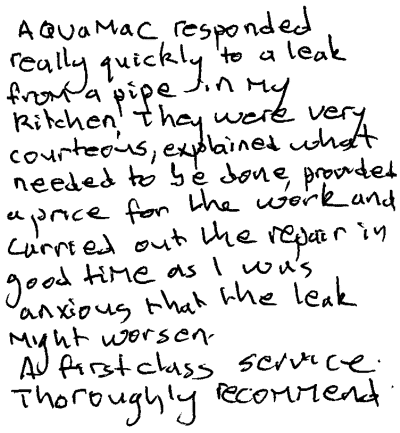 AQuaMac responded
really quickly to a leak
from a pipe in my
kitchen. They were very
courteous, explained what
needed to be done, provided
a price for the work and
carried out the repair in
good time as I was
anxious that the leak
might worsen.
A first class service.
Thoroughly recommend.